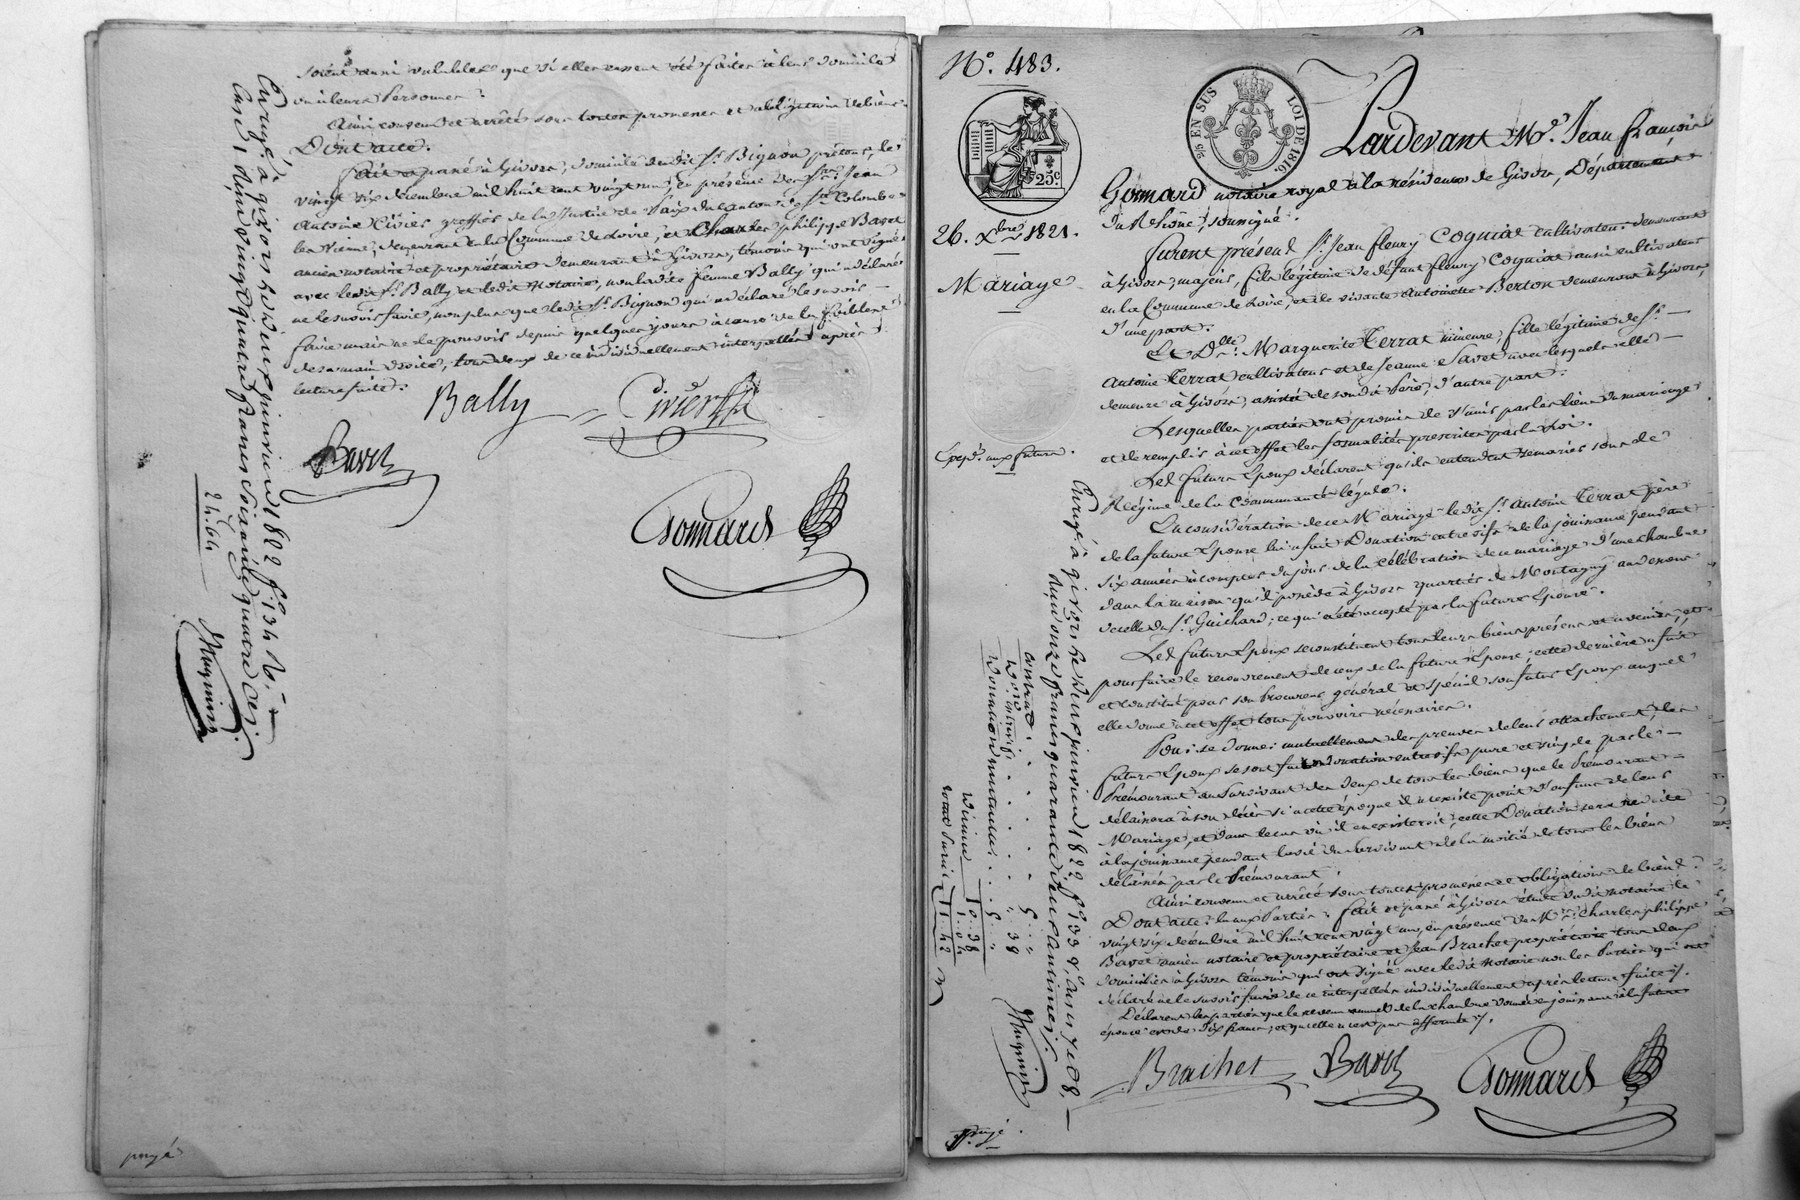 soient aussi valables que si elles eussent été faites à leur domicile
ou à leurs Personnes.
Ainsi convenu et arrêté sous toutes promesses et obligation de biens.
Dont acte.
Fait et passé à Givors, domicile dudit Sr. Bignon prétour, le
vingt six décembre mil huit cent vingt un, en présence de Srs. Jean
Antoine Civier, greffier de la Justice de Paix du canton de Ste. Colombe
les Vienne, demeurant en la Commune de Loire, et Charles philippe Bavet
ancien notaire et propriétaire demeurant à Givors, témoins qui ont signé
avec ledit Sr. Bally et ledit Notaire, non ladite femme Bally qui a déclaré
ne le savoir faire, non plus que ledit Sr. Bignon qui a déclaré le savoir
faire mais ne le pouvoir depuis quelques jours à cause de la faiblesse
de sa main droite, tous deux de ce individuellement interpellés après
lecture faite.
Bally
Civier
Bavet
Gonnard
Enregé. à givors le deux janvier 1822 fo. 134
Reçu vingt quatre francs soixante quatre c.
24.64
payé
No. 483.
25c
25 EN SUS
LOI DE 1816
26. Xbre 1821.
Mariage
Expén. aux futurs.
Pardevant Me. Jean françois
Gonnard notaire royal à la résidence de Givors, Département
du Rhône, soussigné.
Furent présens Sr. Jean fleury Cognat cultivateur demeurant
à Givors, majeur, fils légitime de défunt fleury Cognat aussi cultivateur
en la Commune de Loire, et de vivante Antoinette Berton demeurant à Givors,
d'une part.
Et Dlle. Marguerite Terrat mineure, fille légitime de Sr.
Antoine Terrat cultivateur et de Jeanne Savet avec lesquels elle
demeure à Givors, assistée de son dit Père, d'autre part.
Lesquelles parties ont promis de s'unir par les liens du mariage
et de remplir à cet effet les formalités prescrites par la Loi.
Les futurs Epoux déclarent qu'ils entendent se marier sous le
Régime de la Communauté légale.
En considération de ce Mariage ledit Sr. Antoine Terrat père
de la future Epouse lui a fait Donation entre vifs de la jouissance pendant
six années à compter du jour de la célébration de ce mariage d'une chambre
dans la maison qu'il possède à Givors quartier de Montagny au dessus
de celle du Sr. Guichard; ce qui a été accepté par la future Epouse.
Les futurs Epoux se constituent tous leurs biens présens et avenir, et
pour faire le recouvrement de ceux de la future Epouse, cette dernière a fait
et constitué pour son Procureur général et spécial son futur Epoux auquel
elle donne à cet effet tous pouvoirs nécessaires.
Pour se donner mutuellement des preuves de leur attachement, les
futurs Epoux se sont fait donation entre vifs pure et simple par le
Prémourant au Survivant des deux de tous les biens que le Prémourant
délaissera à son décès si à cette époque il n'existe point d'enfans de leur
Mariage, et dans le cas où il en existeroit, cette Donation sera réduite
à la jouissance pendant la vie du Survivant de la moitié de tous les biens
délaissés par le Prémourant.
Ainsi convenu et arrêté sous toutes promesses et obligations de biens.
Dont acte, fait et passé à Givors étude dudit Notaire le
vingt six décembre mil huit cent vingt un, en présence de Mrs. Charles philippe
Bavet ancien notaire et propriétaire et Jean Brachet propriétaire tous deux
domiciliés à Givors témoins qui ont signé avec ledit Notaire non les Parties qui ont
déclaré ne le savoir faire de ce interpellées individuellement après lecture faite.
Déclarent les parties que le revenu annuel de la chambre donnée en jouissance à la future
épouse est de dix francs, et qu'elle n'est pas affermée.
Brachet
Bavet
Gonnard
Enregé. à givors le deux janvier 1822 fo. 133
Reçu onze francs quarante deux centimes.
Contrat 5. "
Donation mutuelle 5. "
10.38
1.04
11.42